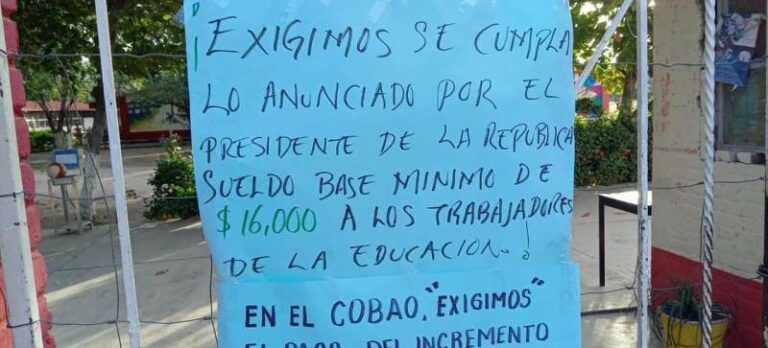 ¡EXIGIMOS SE CUMPLA
LO ANUNCIADO POR EL
PRESIDENTE DE LA REPUBLICA
SUELDO BASE MINIMO DE
$16,000 A LOS TRABAJADORES
DE LA EDUCACION.!
EN EL COBAO, "EXIGIMOS"
EL PAGO DEL INCREMENTO